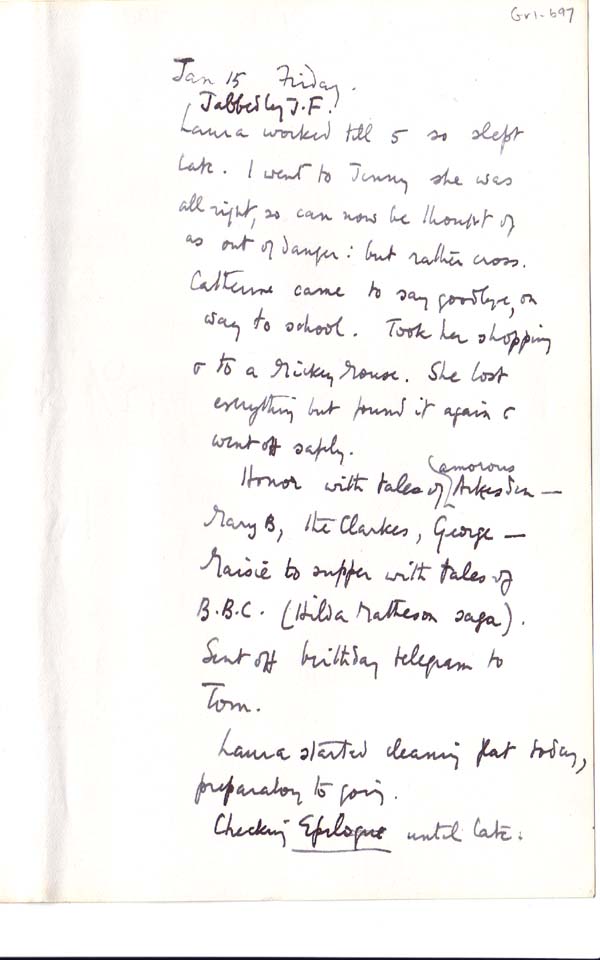 Gr1-697
Jan 15 Friday.
Jabbed by J.F.
Laura worked till 5 so slept
late. I went to Jenny she was
all right, so can now be thought of
as out of danger: but rather cross.
Catherine came to say goodbye, on
way to school. Took her shopping
& to a Mickey Mouse. She lost
everything but found it again &
went off safely.
amorous
Honor with tales of Arkesden —
Mary B, the Clarkes, George —
Maisie to supper with tales of
B.B.C. (Hilda Matheson saga).
Sent off birthday telegram to
Tom.
Laura started cleaning flat today,
preparatory to going.
Checking Epilogue until late.